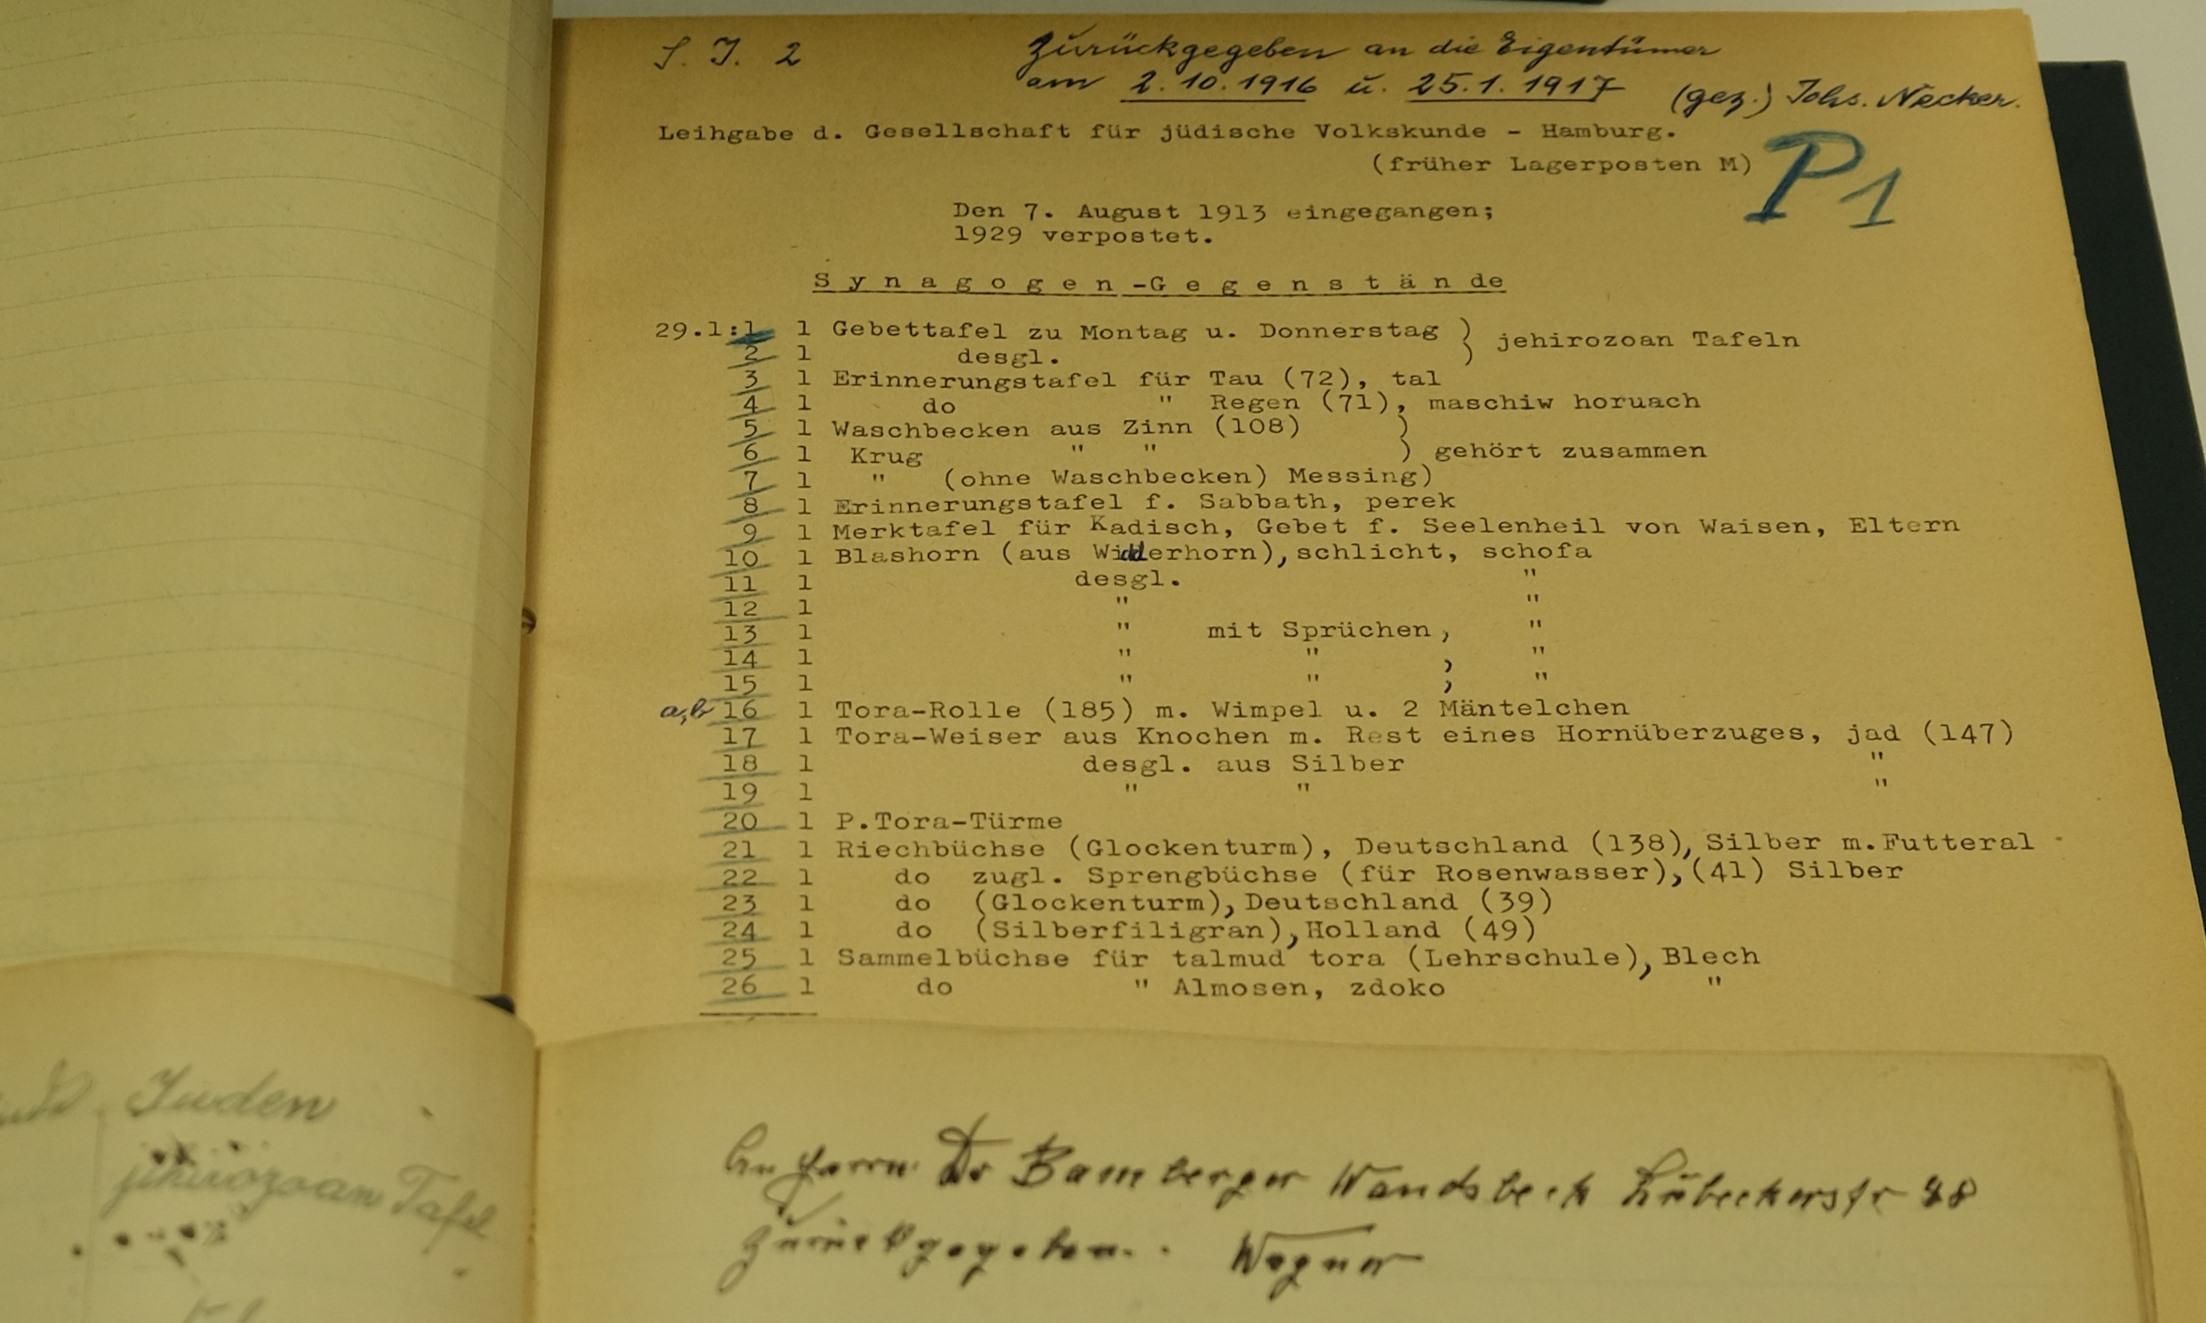 S. J. 2
Zurückgegeben an die Eigentümer
am 2.10.1916 u. 25.1.1917 (gez.) Johs. Necker.
Leihgabe d. Gesellschaft für jüdische Volkskunde - Hamburg.
(früher Lagerposten M)
P1
Den 7. August 1913 eingegangen;
1929 verpostet.
Synagogen-Gegenstände
29.1:1 1 Gebettafel zu Montag u. Donnerstag ) jehirozoan Tafeln
2 1 desgl. )
3 1 Erinnerungstafel für Tau (72), tal
4 1 do " Regen (71), maschiw horuach
5 1 Waschbecken aus Zinn (108) )
6 1 Krug " " ) gehört zusammen
7 1 " (ohne Waschbecken) Messing)
8 1 Erinnerungstafel f. Sabbath, perek
9 1 Merktafel für Kadisch, Gebet f. Seelenheil von Waisen, Eltern
10 1 Blashorn (aus Widderhorn), schlicht, schofa
11 1 desgl. "
12 1 " "
13 1 " mit Sprüchen, "
14 1 " " , "
15 1 " " , "
a,b 16 1 Tora-Rolle (185) m. Wimpel u. 2 Mäntelchen
17 1 Tora-Weiser aus Knochen m. Rest eines Hornüberzuges, jad (147)
18 1 desgl. aus Silber "
19 1 " " "
20 1 P.Tora-Türme
21 1 Riechbüchse (Glockenturm), Deutschland (138), Silber m.Futteral
22 1 do zugl. Sprengbüchse (für Rosenwasser), (41) Silber
23 1 do (Glockenturm), Deutschland (39)
24 1 do (Silberfiligran), Holland (49)
25 1 Sammelbüchse für talmud tora (Lehrschule), Blech
26 1 do " Almosen, zdoko "
Juden
jehirozoan Tafel
An Herrn Dr Bamberger Wandsbeck Lübeckerstr
zurückgegeben. Wegner